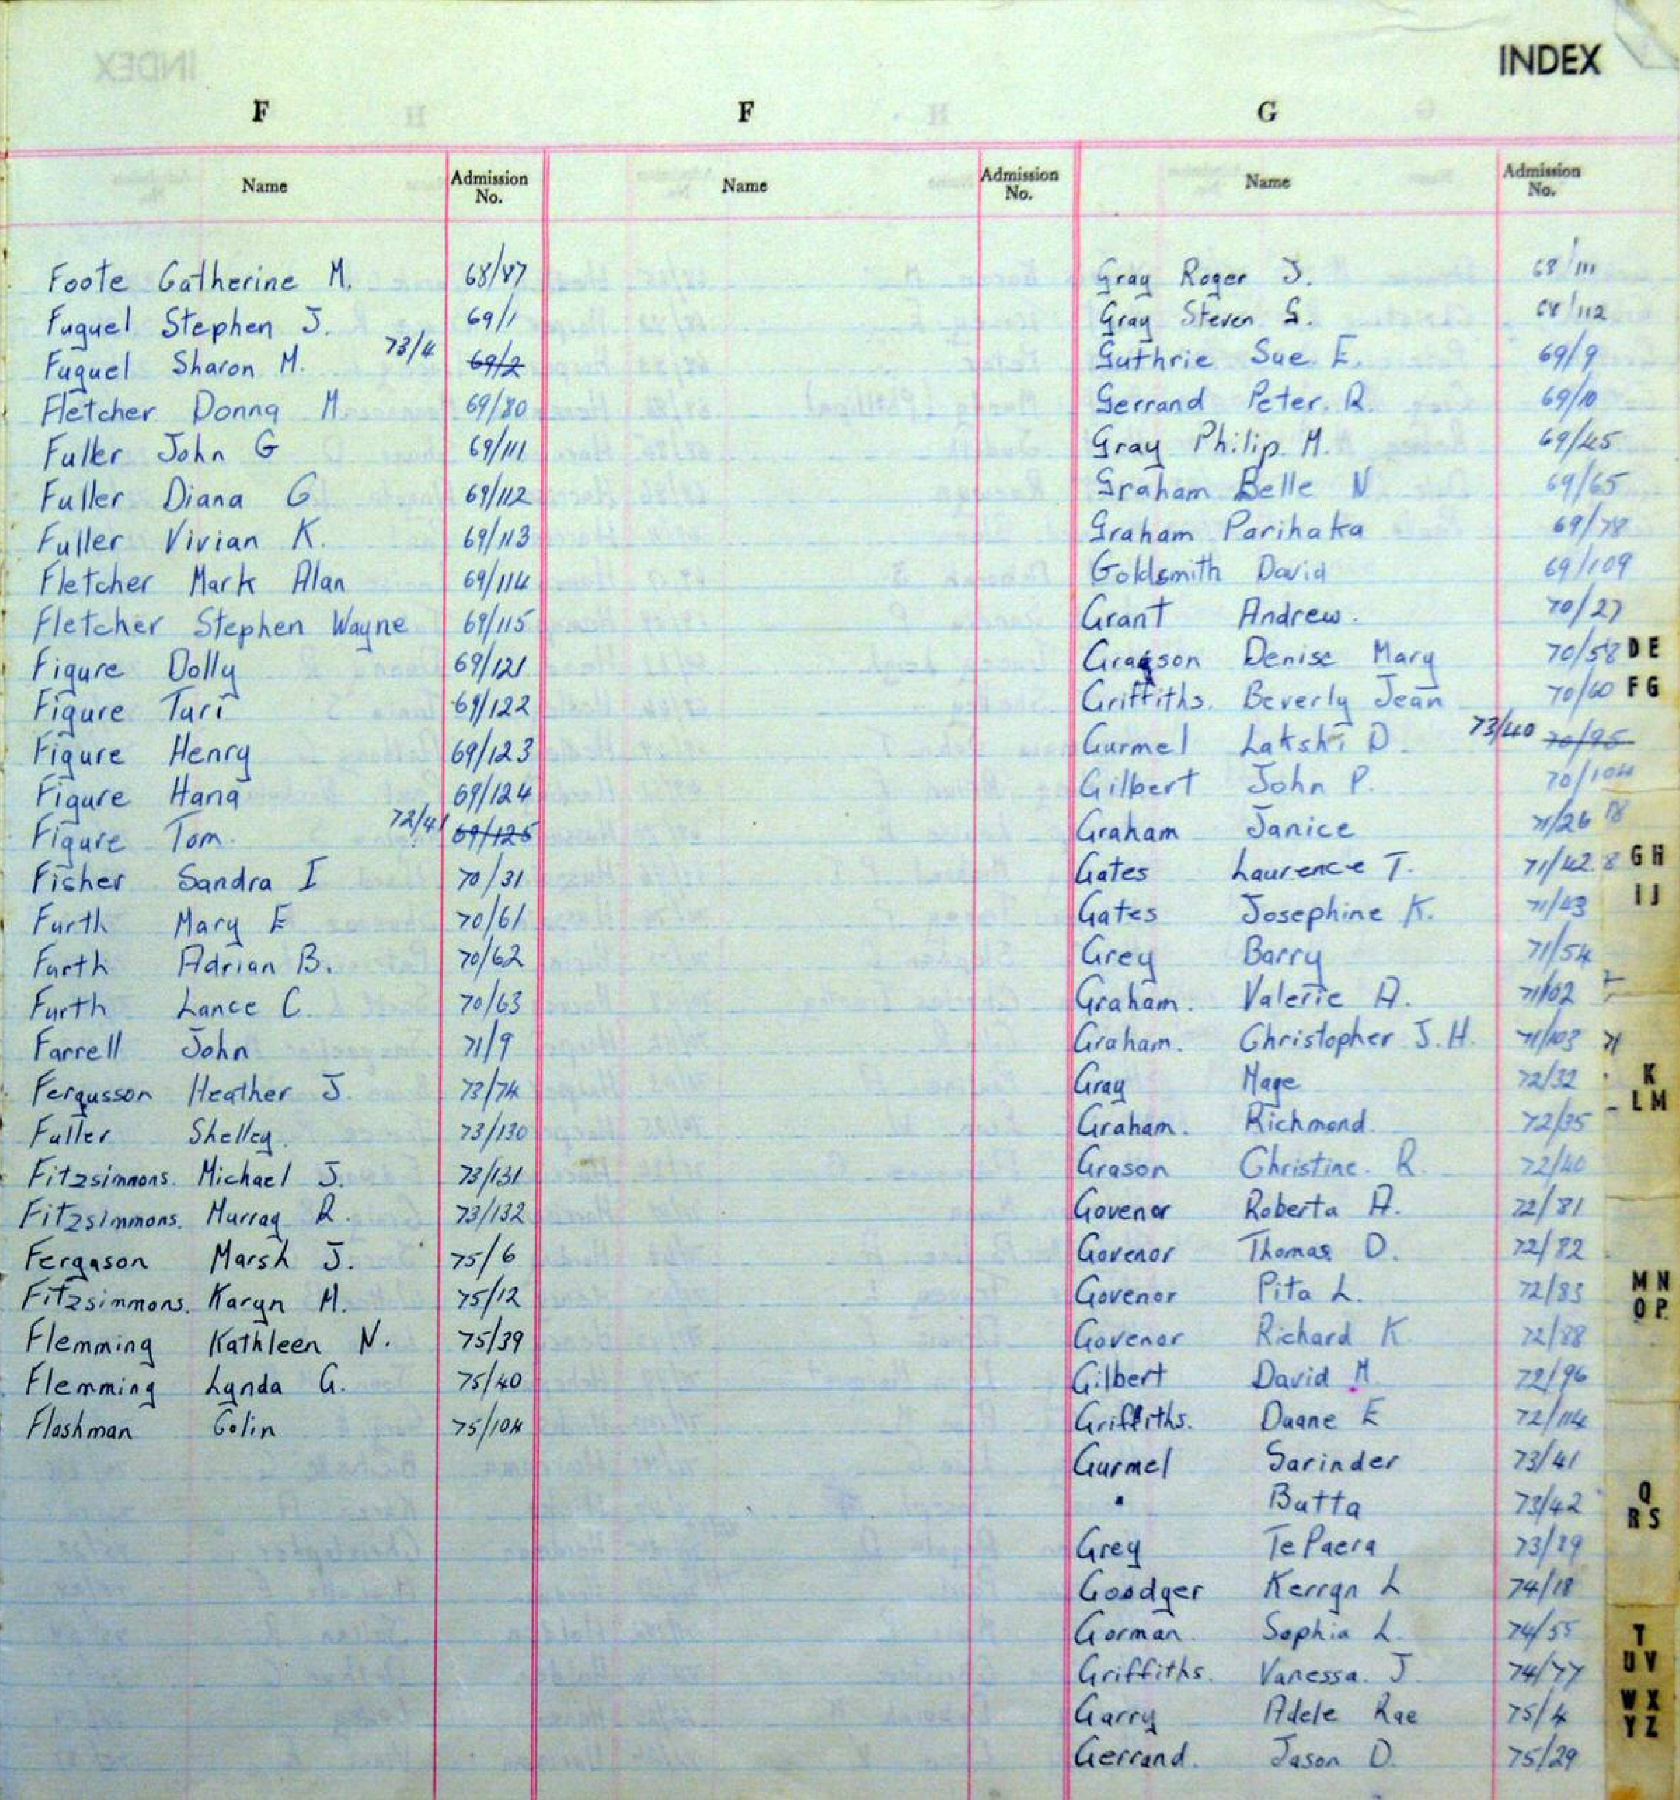 INDEX
F
F
G
Name
Admission No.
Name
Admission No.
Name
Admission No.
Foote Catherine M. 68/87
Fuguel Stephen J. 69/1
Fuguel Sharon M. 73/4 69/2
Fletcher Donna M 69/80
Fuller John G 69/111
Fuller Diana G 69/112
Fuller Vivian K. 69/113
Fletcher Mark Alan 69/114
Fletcher Stephen Wayne 69/115
Figure Dolly 69/121
Figure Turi 69/122
Figure Henry 69/123
Figure Hana 69/124
Figure Tom. 72/41 69/125
Fisher Sandra I 70/31
Furth Mary E 70/61
Furth Adrian B. 70/62
Furth Lance C. 70/63
Farrell John 71/9
Fergusson Heather J. 73/74
Fuller Shelley. 73/130
Fitzsimmons. Michael J. 73/131
Fitzsimmons. Murray R. 73/132
Ferguson Marsh J. 75/6
Fitzsimmons. Karyn M. 75/12
Flemming Kathleen N. 75/39
Flemming Lynda G. 75/40
Flashman Colin 75/104
Gray Roger J. 68/111
Gray Steven G. 68/112
Guthrie Sue E. 69/9
Gerrand Peter. R. 69/10
Gray Philip. M. 69/45
Graham Belle N 69/65
Graham Parihaka 69/78
Goldsmith David 69/109
Grant Andrew. 70/27
Grayson Denise Mary 70/58
Griffiths. Beverly Jean 70/60
Gurmel Lakshi D. 73/40 70/95
Gilbert John P. 70/104
Graham Janice 71/26
Gates Laurence T. 71/42
Gates Josephine K. 71/43
Grey Barry 71/54
Graham. Valerie A. 71/102
Graham. Christopher J.H. 71/103
Gray Mage 72/32
Graham. Richmond. 72/35
Grason Christine. R. 72/40
Govenor Roberta A. 72/81
Govenor Thomas D. 72/82
Govenor Pita L. 72/83
Govenor Richard K 72/88
Gilbert David M. 72/96
Griffiths. Duane E 72/114
Gurmel Sarinder 73/41
" Butta 73/42
Grey Te Paera 73/89
Goodger Kerryn L 74/18
Gorman. Sophia L. 74/55
Griffiths. Vanessa. J. 74/77
Garry Adele Rae 75/4
Gerrand. Jason D. 75/29
D E
F G
G H
I J
K
L M
M N
O P
Q
R S
T
U V
W X
Y Z